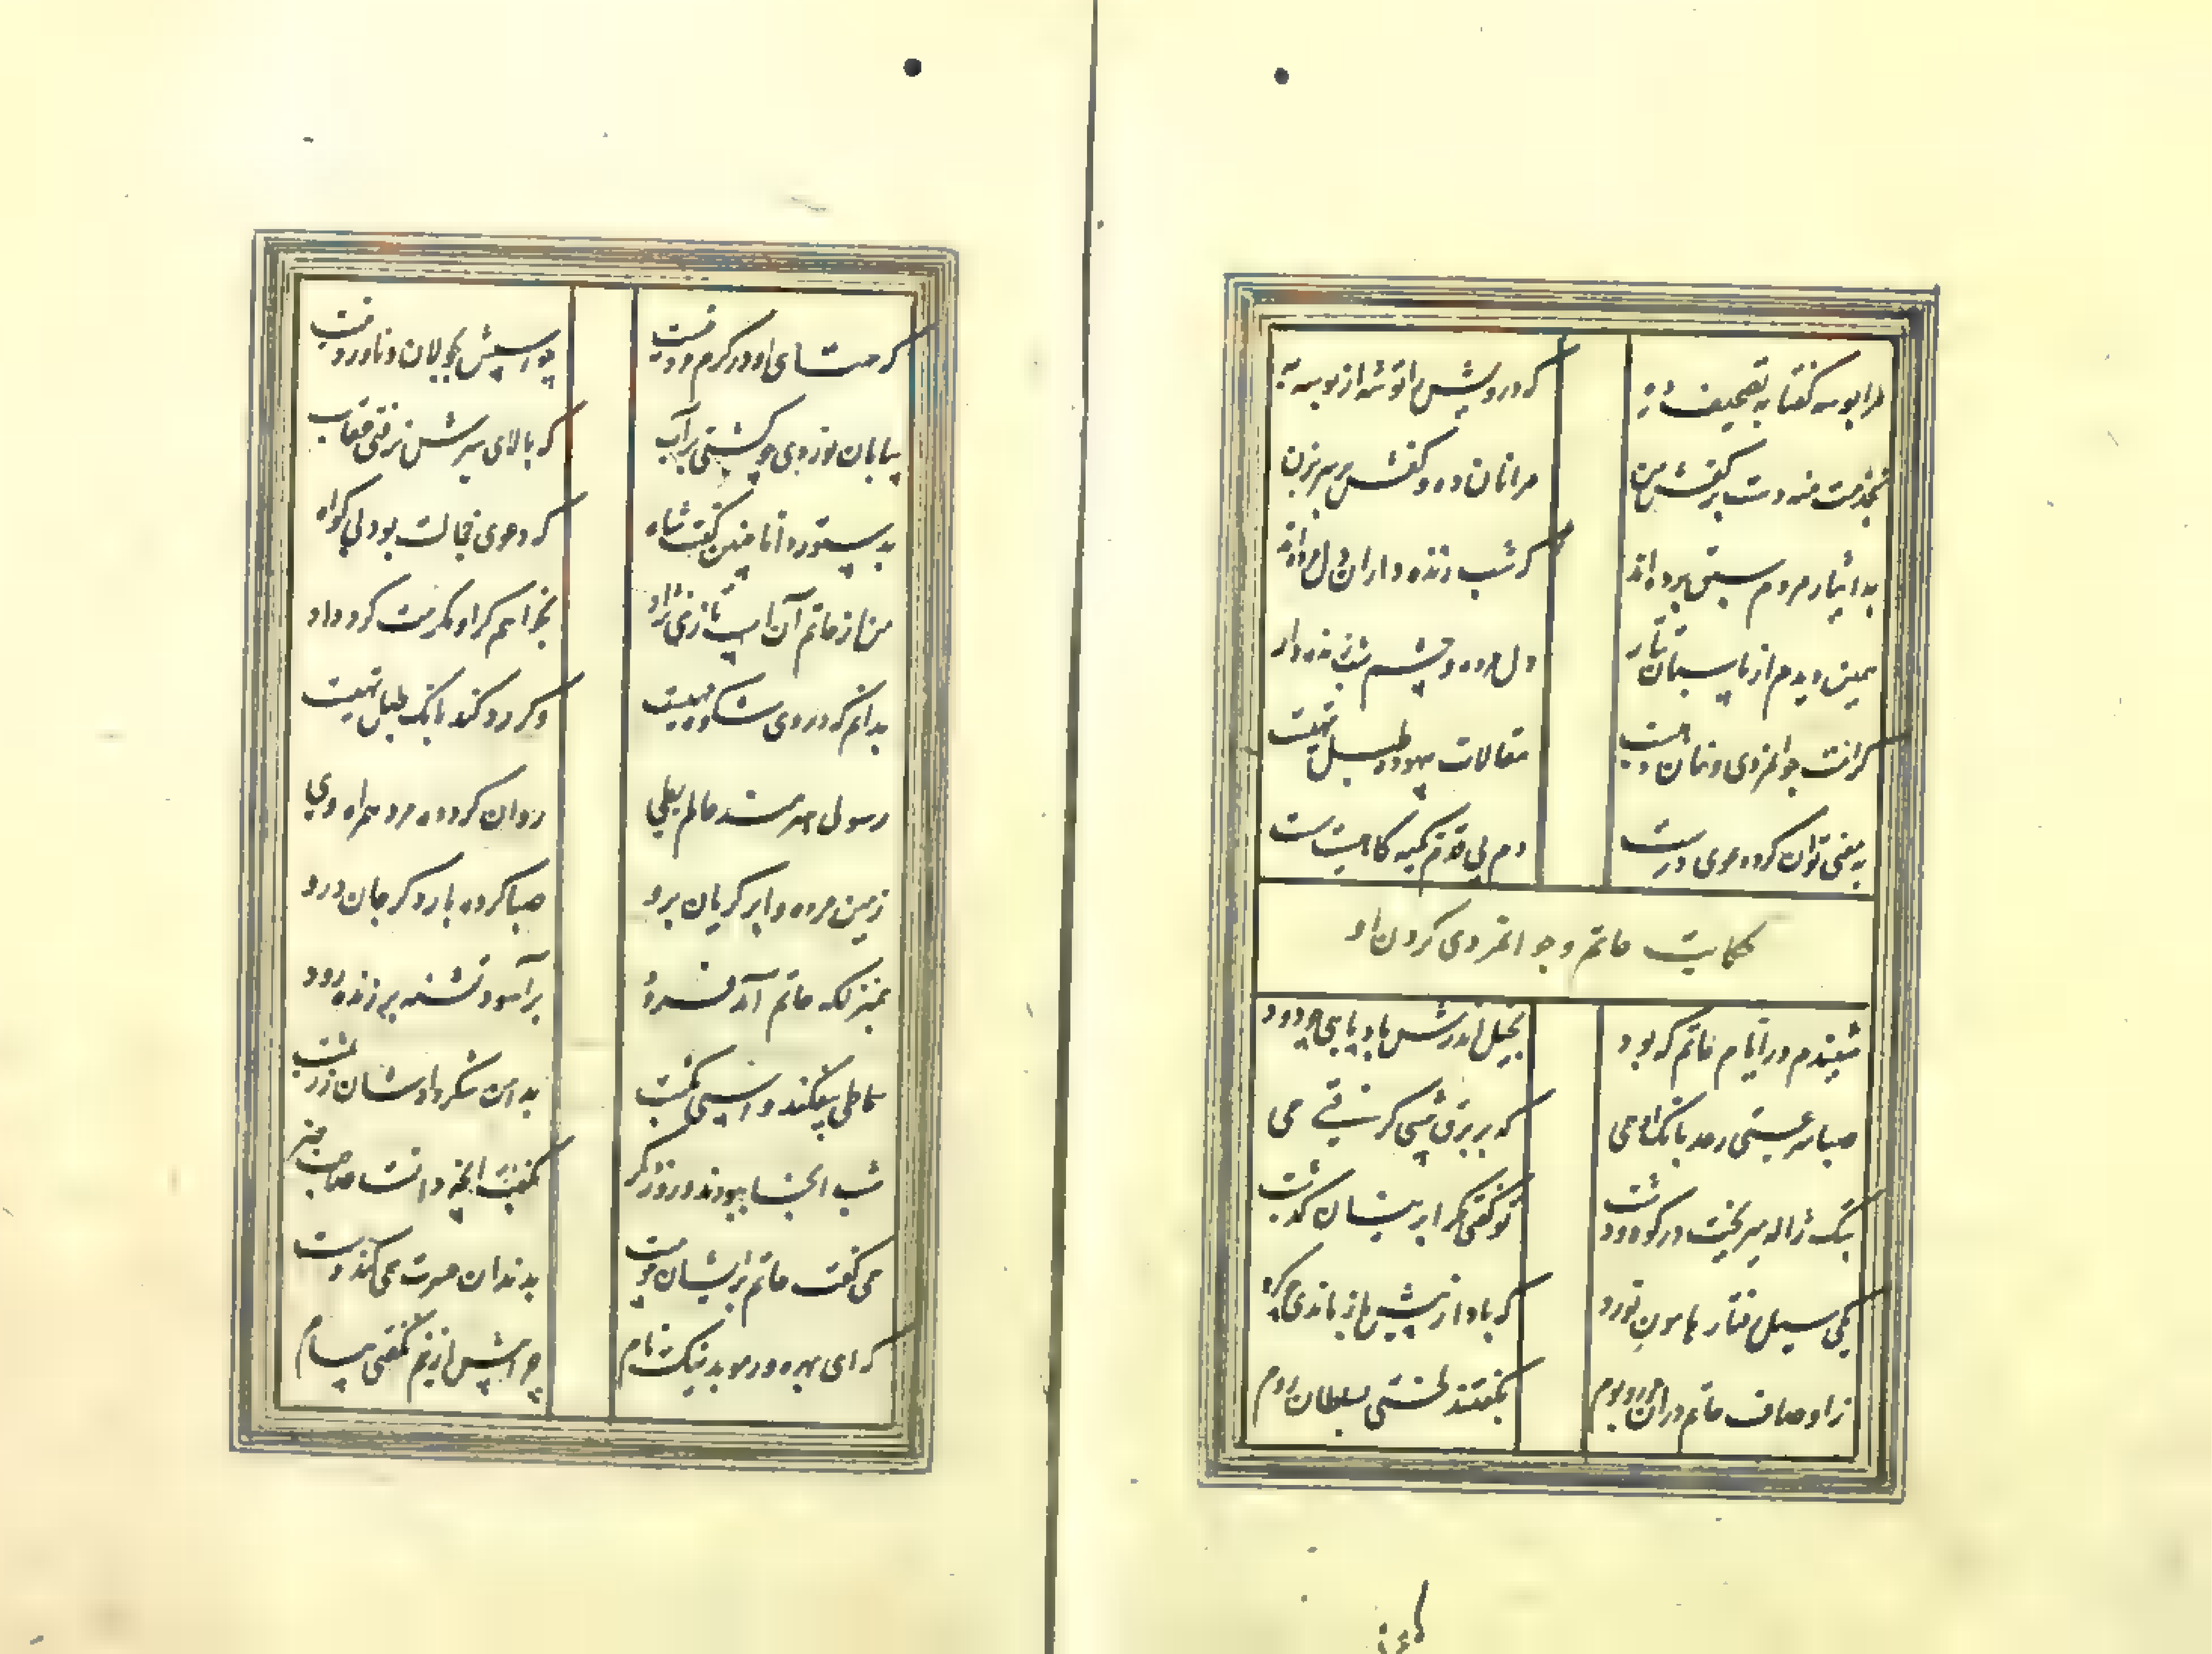 مرا بوسه گفتا به تصحیف ده که درویش را توشه از بوسه به
بخدمت منه دست بر کفش من مرا نان ده و کفش بر سر بزن
به ایثار مردم سبق برده‌اند که شب زنده داران دل مرده‌اند
همین دیدم از پاسبان تتار دل مرده و چشم شب زنده دار
کرامت جوانمردی و نان دهیست مقالات بیهوده طبل تهیست
به معنی توان کرد دعوی درست دم بی قدم تکیه گاهیست سست
حکایت حاتم و جوانمردی کردن او
شنیدم در ایام حاتم که بود بخیل اندرش بادپایی چو دود
صبا سرعتی رعد بانگ ادهمی که بر برق پیشی گرفتی همی
بتک ژاله میریخت در کوه و دشت تو گفتی مگر ابر نیسان گذشت
یکی سیل رفتار هامون نورد که باد از پیش باز ماندی چو گرد
ز اوصاف حاتم در آن مرز و بوم بگفتند لختی بسلطان روم
که همتای او در کرم مرد نیست چو اسپش بجولان و ناورد نیست
بیابان نوردی چو کشتی بر آب که بالای سیرش نرفتی عقاب
بدستور دانا چنین گفت شاه که دعوی خجالت بود بی گواه
من از حاتم آن اسپ تازی نژاد بخواهم گر او مکرمت کرد و داد
بدانم که در وی شکوه مهیست وگر رد کند بانگ طبل تهیست
رسول هنرمند عالم بطی روان کرد و ده مرد همراه وی
زمین مرده و ابر گریان برو صبا کرده بار دگر جان درو
بمنزلگه حاتم آمد فرود برآسود تشنه بر زنده رود
سماطی بیفکند و اسپی بکشت بدامن شکر دادشان زر بمشت
شب آنجا ببودند و روز دگر بگفت آنچه دانست صاحب خبر
همی گفت حاتم پریشان چو مست بدندان حسرت همی کند دست
که ای بهره‌ور موبد نیک نام چرا پیش ازینم نگفتی پیام